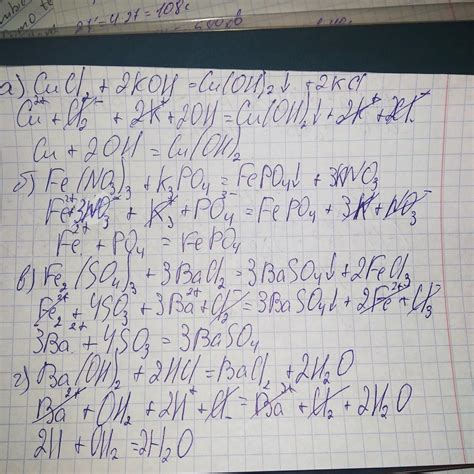 2ℓ = 4.2ℓ = 108
а) CuCl₂ + 2KOH = Cu(OH)₂↓ + 2KCl
Cu²⁺ + Cl₂⁻ + 2K⁺ + 2OH = Cu(OH)₂↓ + 2K⁺ + 2Cl⁻
Cu + 2OH = Cu(OH)₂
б) Fe(NO₃)₃ + K₃PO₄ = FePO₄↓ + 3KNO₃
Fe³⁺ 3NO₃⁻ + K₃⁺ + PO₄³⁻ = FePO₄ + 3K⁺ + NO₃⁻
Fe³⁺ + PO₄ = FePO₄
в) Fe₂(SO₄)₃ + 3BaCl₂ = 3BaSO₄↓ + 2FeCl₃
Fe₂²⁺ + 4SO₃ + 3Ba²⁺ + Cl₂⁻ = 3BaSO₄↓ + 2Fe²⁺ + Cl₃⁻
3Ba²⁺ + 4SO₃ = 3BaSO₄
г) Ba(OH)₂ + 2HCl = BaCl₂ + 2H₂O
Ba²⁺ + OH₂ + 2H⁺ + Cl⁻ = Ba²⁺ + Cl₂⁻ + 2H₂O
2H + OH₂ = 2H₂O